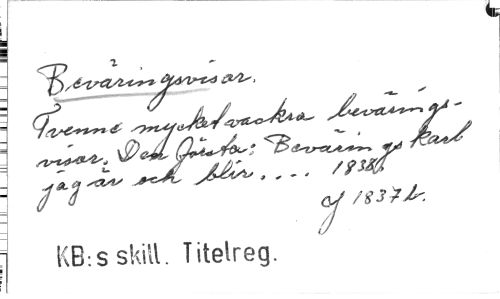 Beväringsvisor.
Tvenne mycket vackra bevärings-
visor. Den första: Beväringskarl
jag är och blir.... 1838.
Cf 1837 b.
KB:s skill. Titelreg.